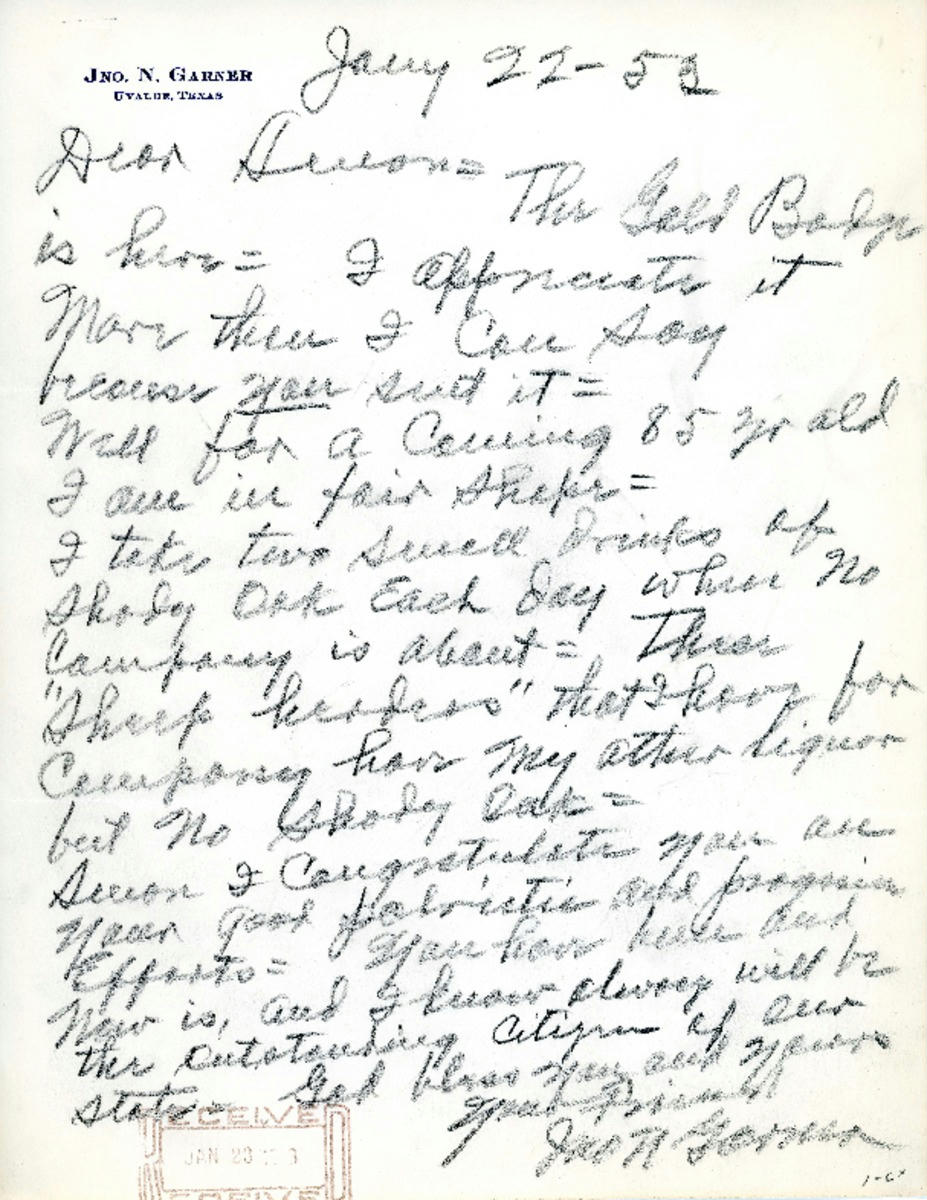 JNO. N. GARNER
UVALDE, TEXAS
Jany 22-53
Dear Amon=
The Gold Badge
is here= I appreciate it
More then I Can Say
because you sent it=
Well for a Coming 85 yr old
I am in fair shape=
I take two small Drinks of
Shady Oak Each Day when No
Company is about= These
"Sheep herders" that I have for
Company have My other liquor
but No Shady Oak=
Amon I Congratulate you on
your good patriotic and progressive
Efforts= You have been and
Now is, and I know always will be
the outstanding Citizen of our
State= God bless you and yours
Your Friend
Jno N Garner
RECEIVE
JAN 23
RECEIVE